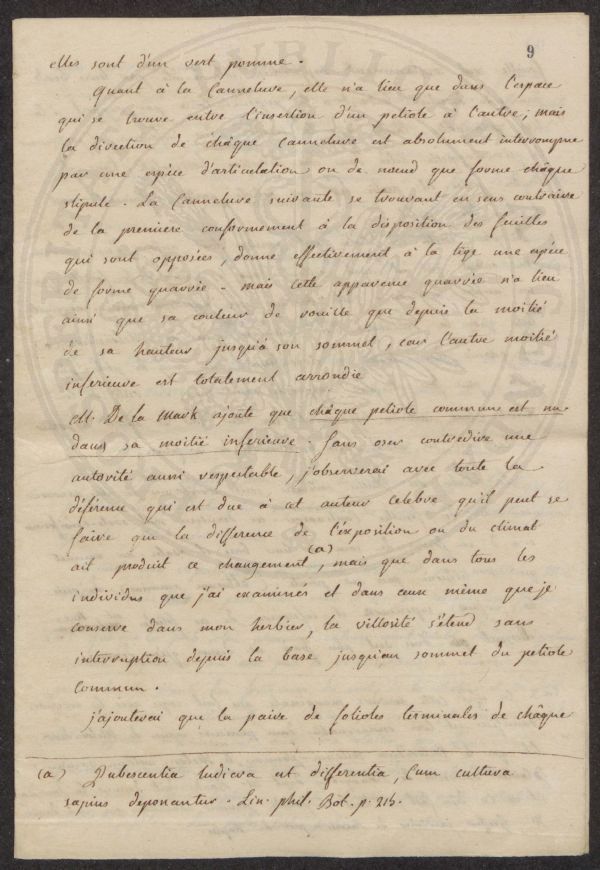 9
elles sont d'un vert pomme.
Quant à la Canneluve, elle n'a lieu que dans l'espace
qui se trouve entre l'insertion d'un petiole à l'autre; mais
la direction de châque Canneluve est absolument interrompue
par une espèce d'articulation ou de nœud que forme châque
stipule. La Canneluve suivante se trouvant en sens contraire
de la premiere conformement à la disposition des feuilles
qui sont opposées, donne effectivement à la tige une espèce
de forme quarrée. mais cette apparence quarrée n'a lieu
ainsi que sa couleur de rouille que depuis la moitié
de sa hauteur jusqu'à son sommet, car l'autre moitié
inferieure est totalement arrondie
M. De la Mark ajoute que châque petiole commun est nu
dans sa moitié inferieure. Sans oser contredire une
autorité aussi respectable, j'observerai avec toute la
déférence qui est due à cet auteur celebre qu'il peut se
faire que la difference de l'éxposition ou du climat
ait produit ce changement (a), mais que dans tous les
individus que j'ai examinés et dans ceux même que je
conserve dans mon herbier, la villosité s'étend sans
interruption depuis la base jusqu'au sommet du petiole
commun.
j'ajouterai que la paire de folioles terminales de châque
(a) Pubescentia ludicra est differentia, Cum cultura
sæpius deponantur. Lin. phil. Bot. p. 215.